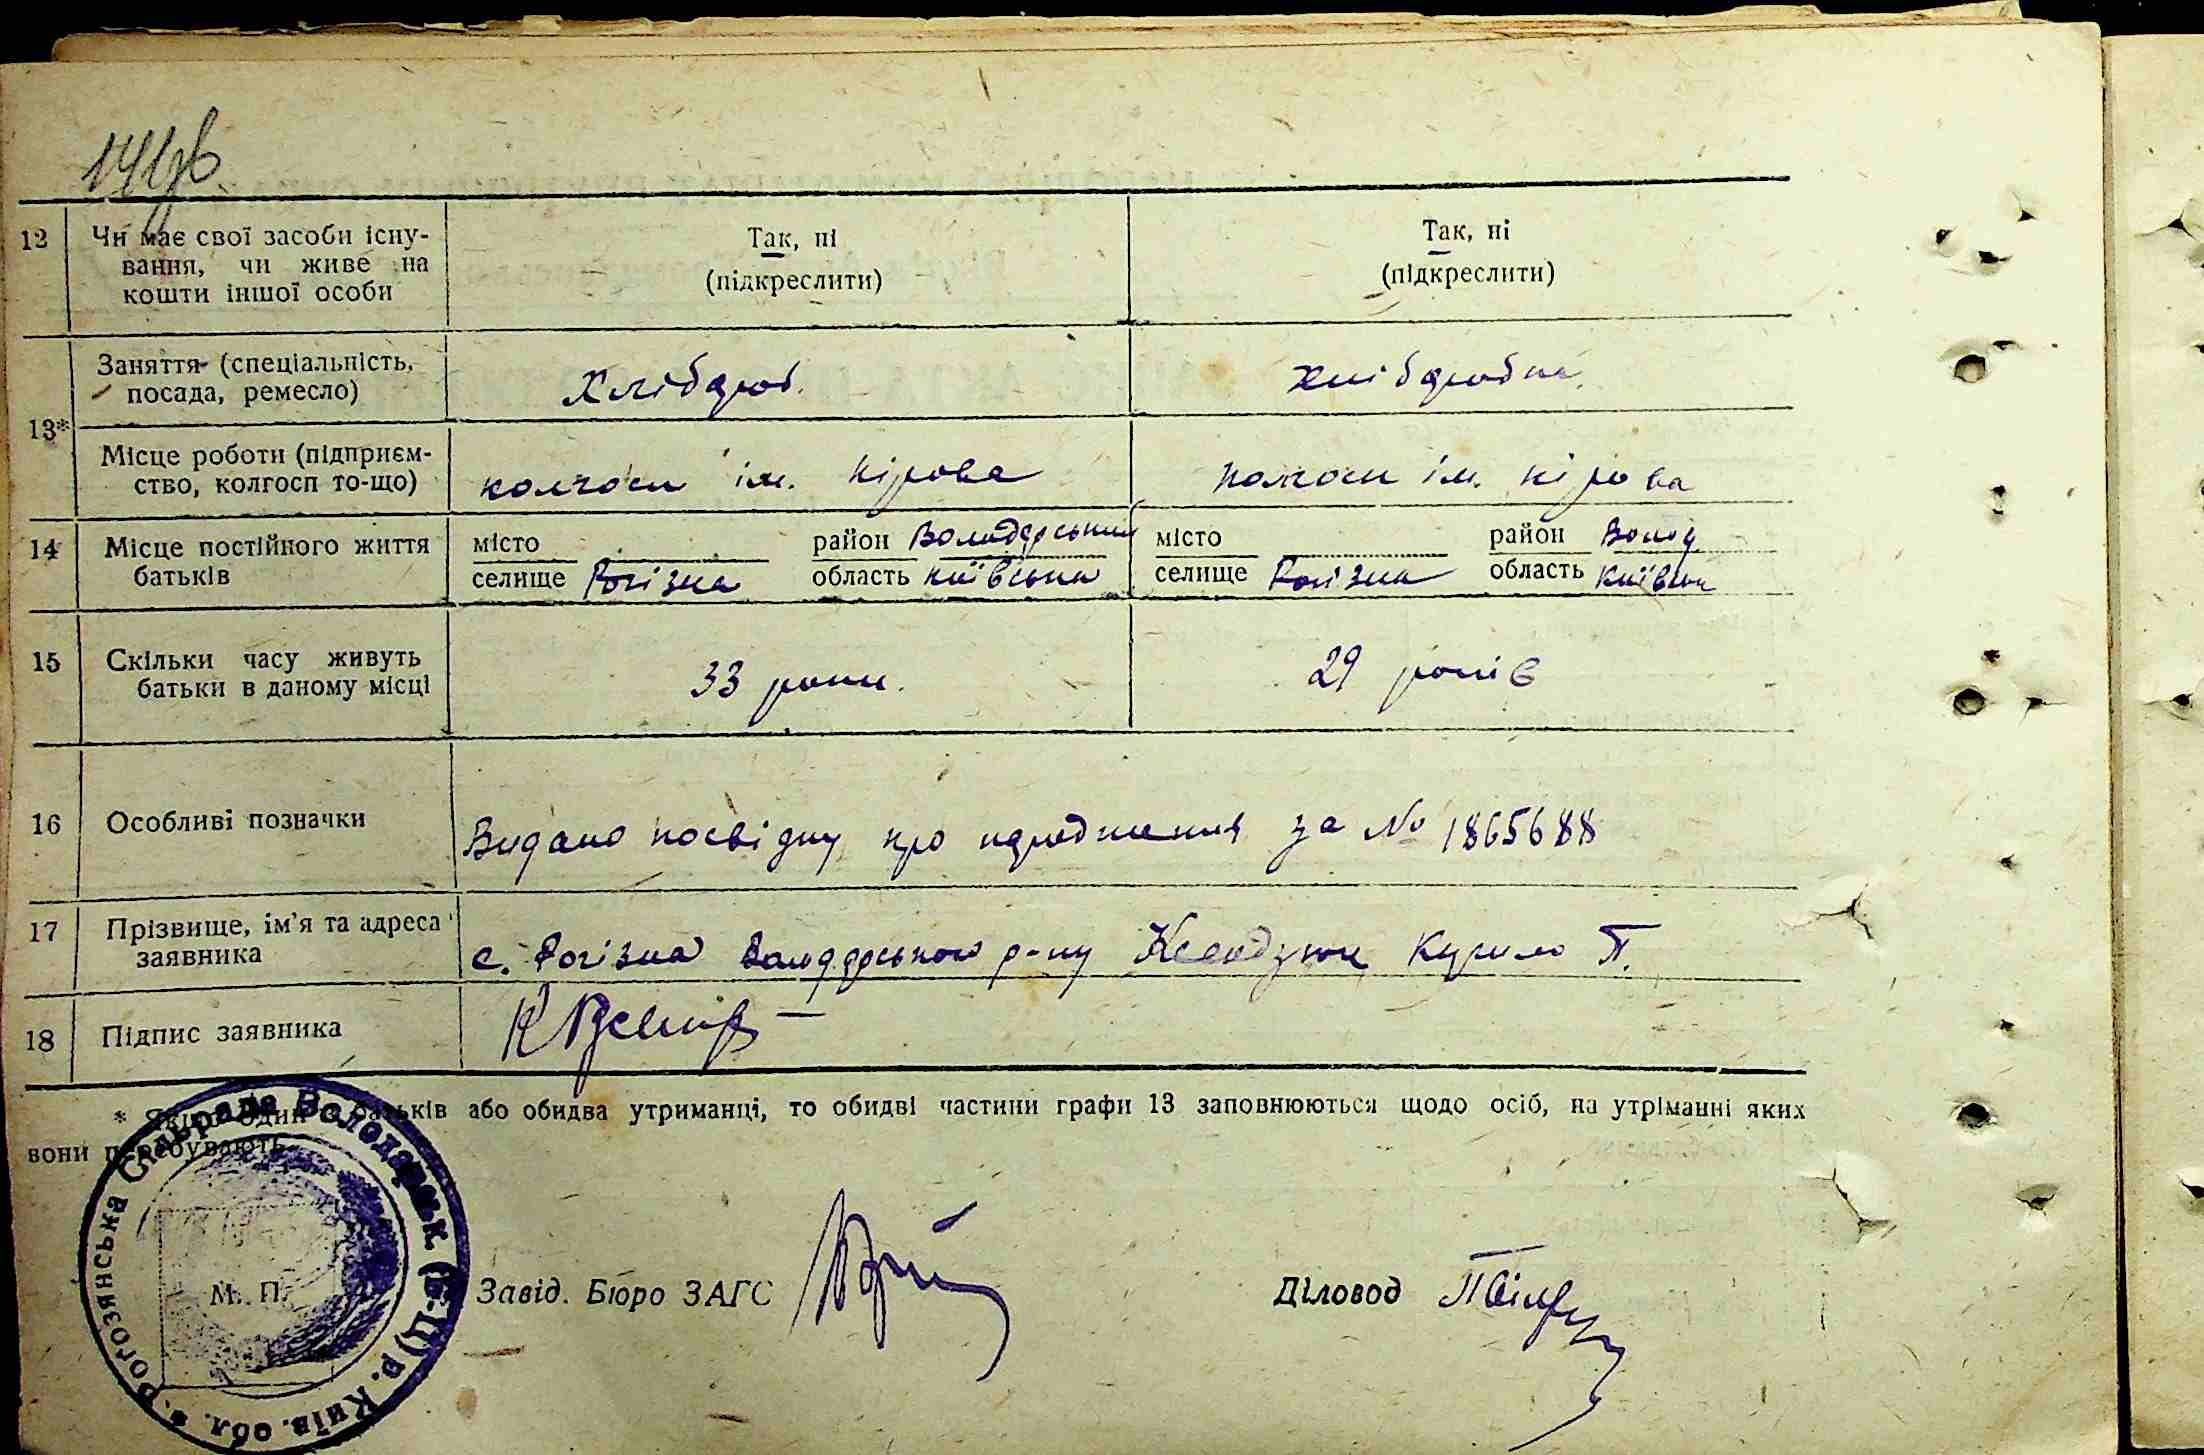 12 Чи має свої засоби існу-
вання, чи живе на
кошти іншої особи
Так, ні
(підкреслити)
Так, ні
(підкреслити)
13*
Заняття (спеціальність,
посада, ремесло)
Хлібороб.
Хліборобка.
Місце роботи (підприєм-
ство, колгосп то-що)
колгосп ім. Кірова
колгосп ім. Кірова
14 Місце постійного життя
батьків
місто район Володарський
селище Рогізна область Київська
місто район Волод
селище Рогізна область Київськ
15 Скільки часу живуть
батьки в даному місці
33 роки.
29 років
16 Особливі позначки
Видано посвідку про народження за № 1865688
17 Прізвище, ім'я та адреса
заявника
с. Рогізна Володарського р-ну Кирило П.
18 Підпис заявника
* Якщо один з батьків або обидва утриманці, то обидві частини графи 13 заповнюються щодо осіб, на утріманні яких
вони перебувають.
с. Рогозянська Сільрада Володарськ (Б-Ц) р. Київ. обл.
М. П.
Завід. Бюро ЗАГС
Діловод